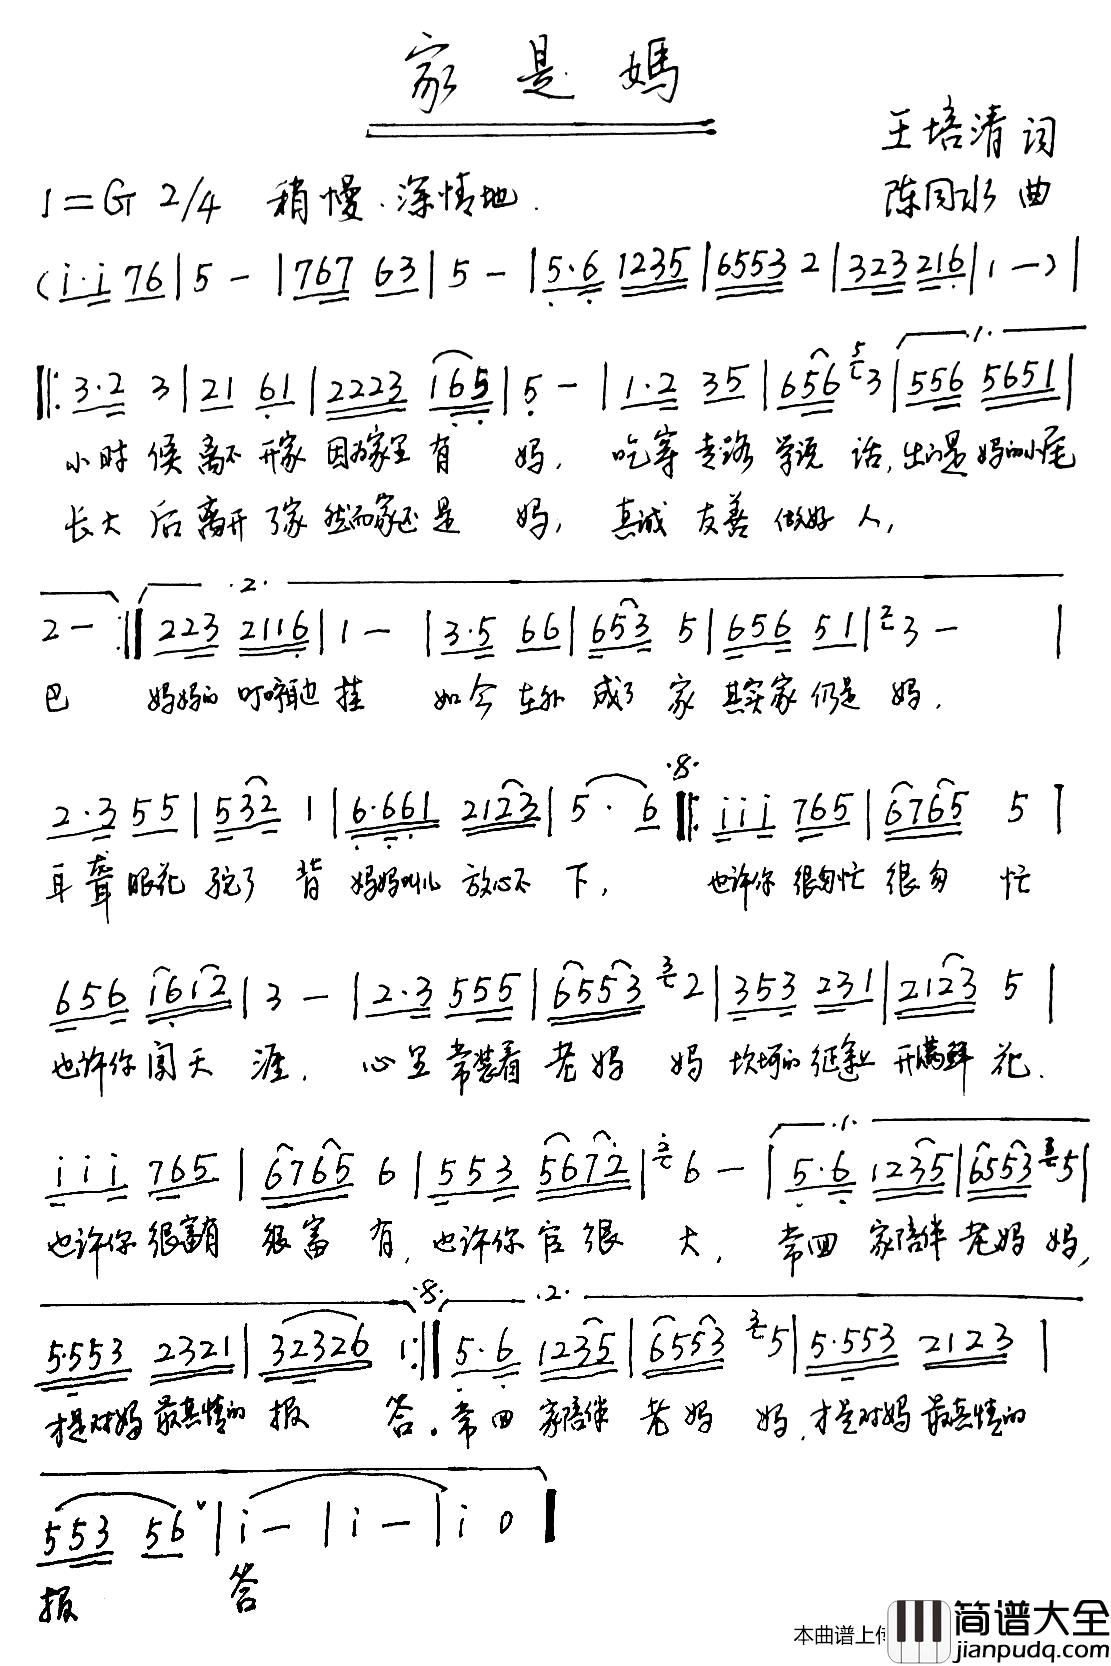 家是媽
王培清 词
1=G 2/4 稍慢.深情地.
陈同水 曲
(i·i 76|5 -|767 63|5 -|5·6 1235|6553 2|323 216|1 -)|
.1.
‖:3·2 3|21 61|2223 165|5 -|1·2 35|656 53|556 5651|
小时 候 离不 开家 因为家里 有 妈, 吃穿 走路 学说 话,出门是 妈的小尾
长大 后 离开 了家 然而家还 是 妈, 真诚 友善 做好 人,
.2.
2 - :‖223 2116|1 -|3·5 66|653 5|656 51|23 -|
巴 妈妈的 叮咛耳边 挂 如今 在外 成了 家 其实家 仍是 妈.
.8.
2·3 55|532 1|6·661 2123|5· 6‖:iii 765|6765 5|
耳聋 眼花 驼了 背 妈妈 放心不 下, 也许你 很匆忙 很匆 忙
656 1612|3 -|2·3 555|6553 32|353 231|2123 5|
也许你 闯天 涯. 心里 常装着 老妈 妈 坎坷的 征途上 开满鲜 花.
.1.
iii 765|6765 6|553 5672|26 -|5·6 1235|6553 35|
也许你 很富有 很富 有,也许你 官很 大. 常回 家陪伴 老妈 妈,
.8. .2.
5·553 2321|32326 1:‖5·6 1235|6553 35|5·553 2123|
才是对妈 最真情的 报 答。常回 家陪伴 老妈 妈,才是对妈 最真情的
553 56ˇ|i -|i -|i 0‖
报 答
本曲谱上传
简谱大全
jianpudq.com